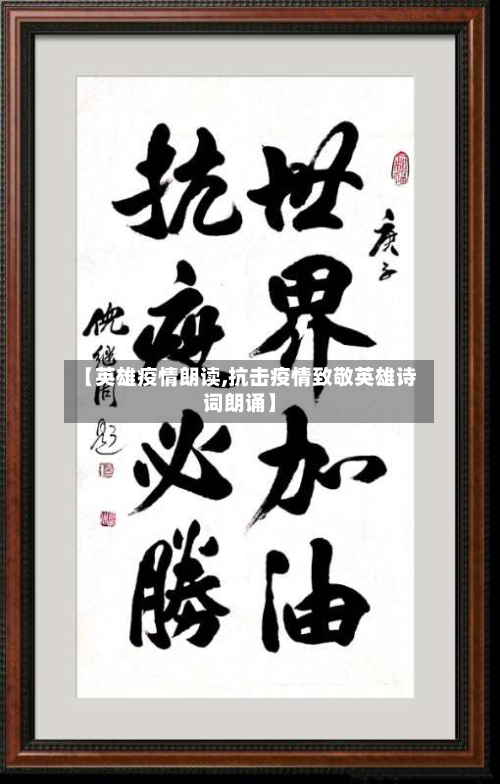 庚子
世界加油
抗疫必勝
倪继周题
【英雄疫情朗读,抗击疫情致敬英雄诗
词朗诵】